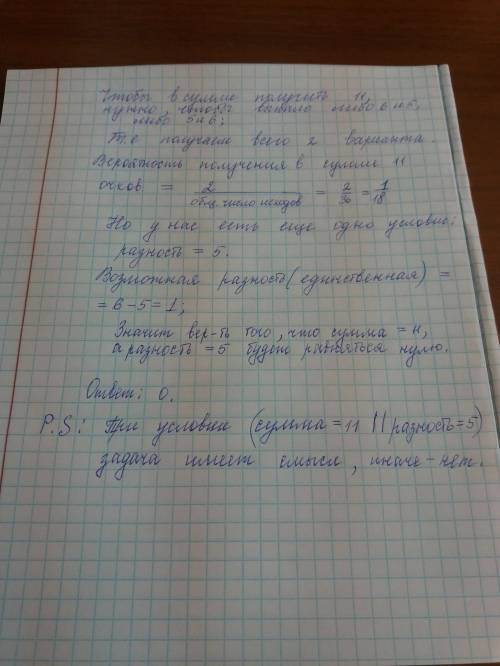 Чтобы в сумме получить 11,
нужно, чтобы выпало либо 6 и 5,
либо 5 и 6;
Т.е получаем всего 2 варианта.
Вероятность получения в сумме 11
очков = 2/общ. число исходов = 2/36 = 1/18
Но у нас есть еще одно условие:
разность = 5.
Возможная разность (единственная) =
= 6-5=1;
Значит вер-ть того, что сумма = 11,
а разность = 5 будет равняться нулю.
Ответ: 0.
P.S: При условии (сумма = 11 || разность = 5)
задача имеет смысл, иначе - нет.